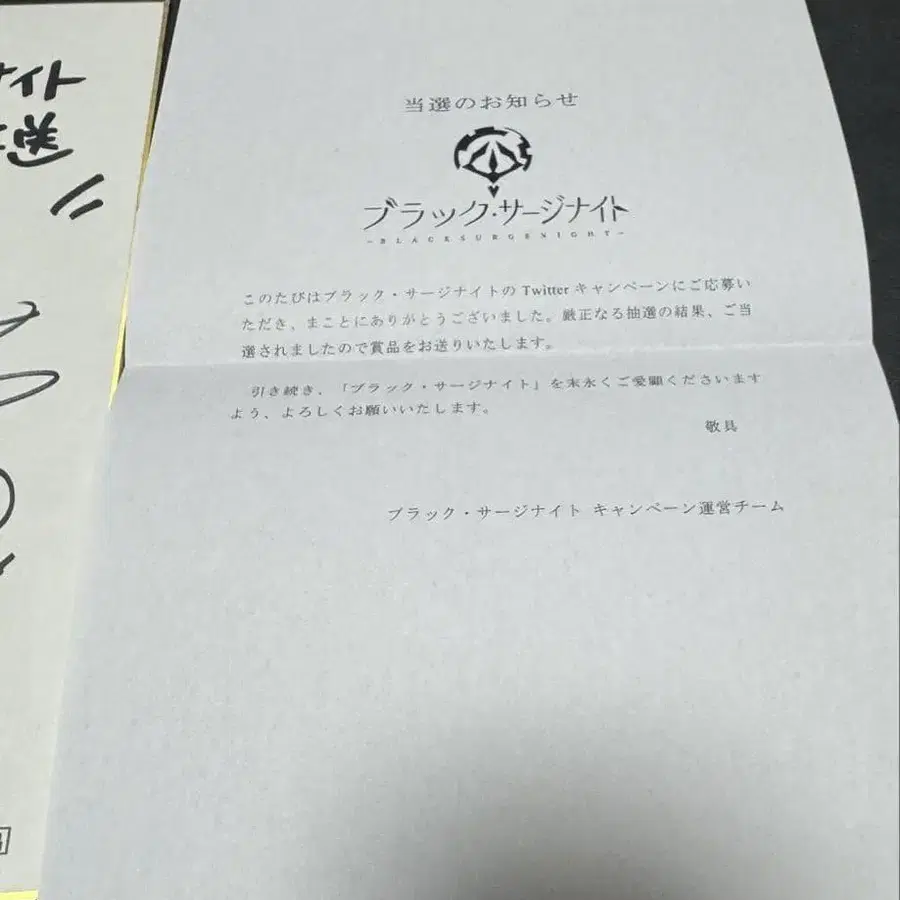 ナイト
当選のお知らせ
ブラック・サージナイト
-BLACKSURGENIGHT-
このたびはブラック・サージナイトの Twitter キャンペーンにご応募い
ただき、まことにありがとうございました。厳正なる抽選の結果、ご当
選されましたので賞品をお送りいたします。
引き続き、「ブラック・サージナイト」を末永くご愛顧くださいます
よう、よろしくお願いいたします。
敬具
ブラック・サージナイト キャンペーン運営チーム